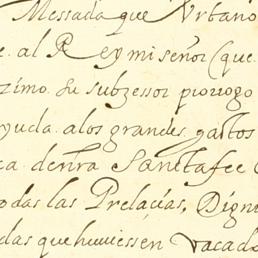 Messada que Vrbano
al Rey mi señor (que
zimo. su subzessor prorogo
ayuda. a los grandes, gastos
ca de nra Sanctafee C
odas las Prelacias, Digni
das que huuiessen Vacado